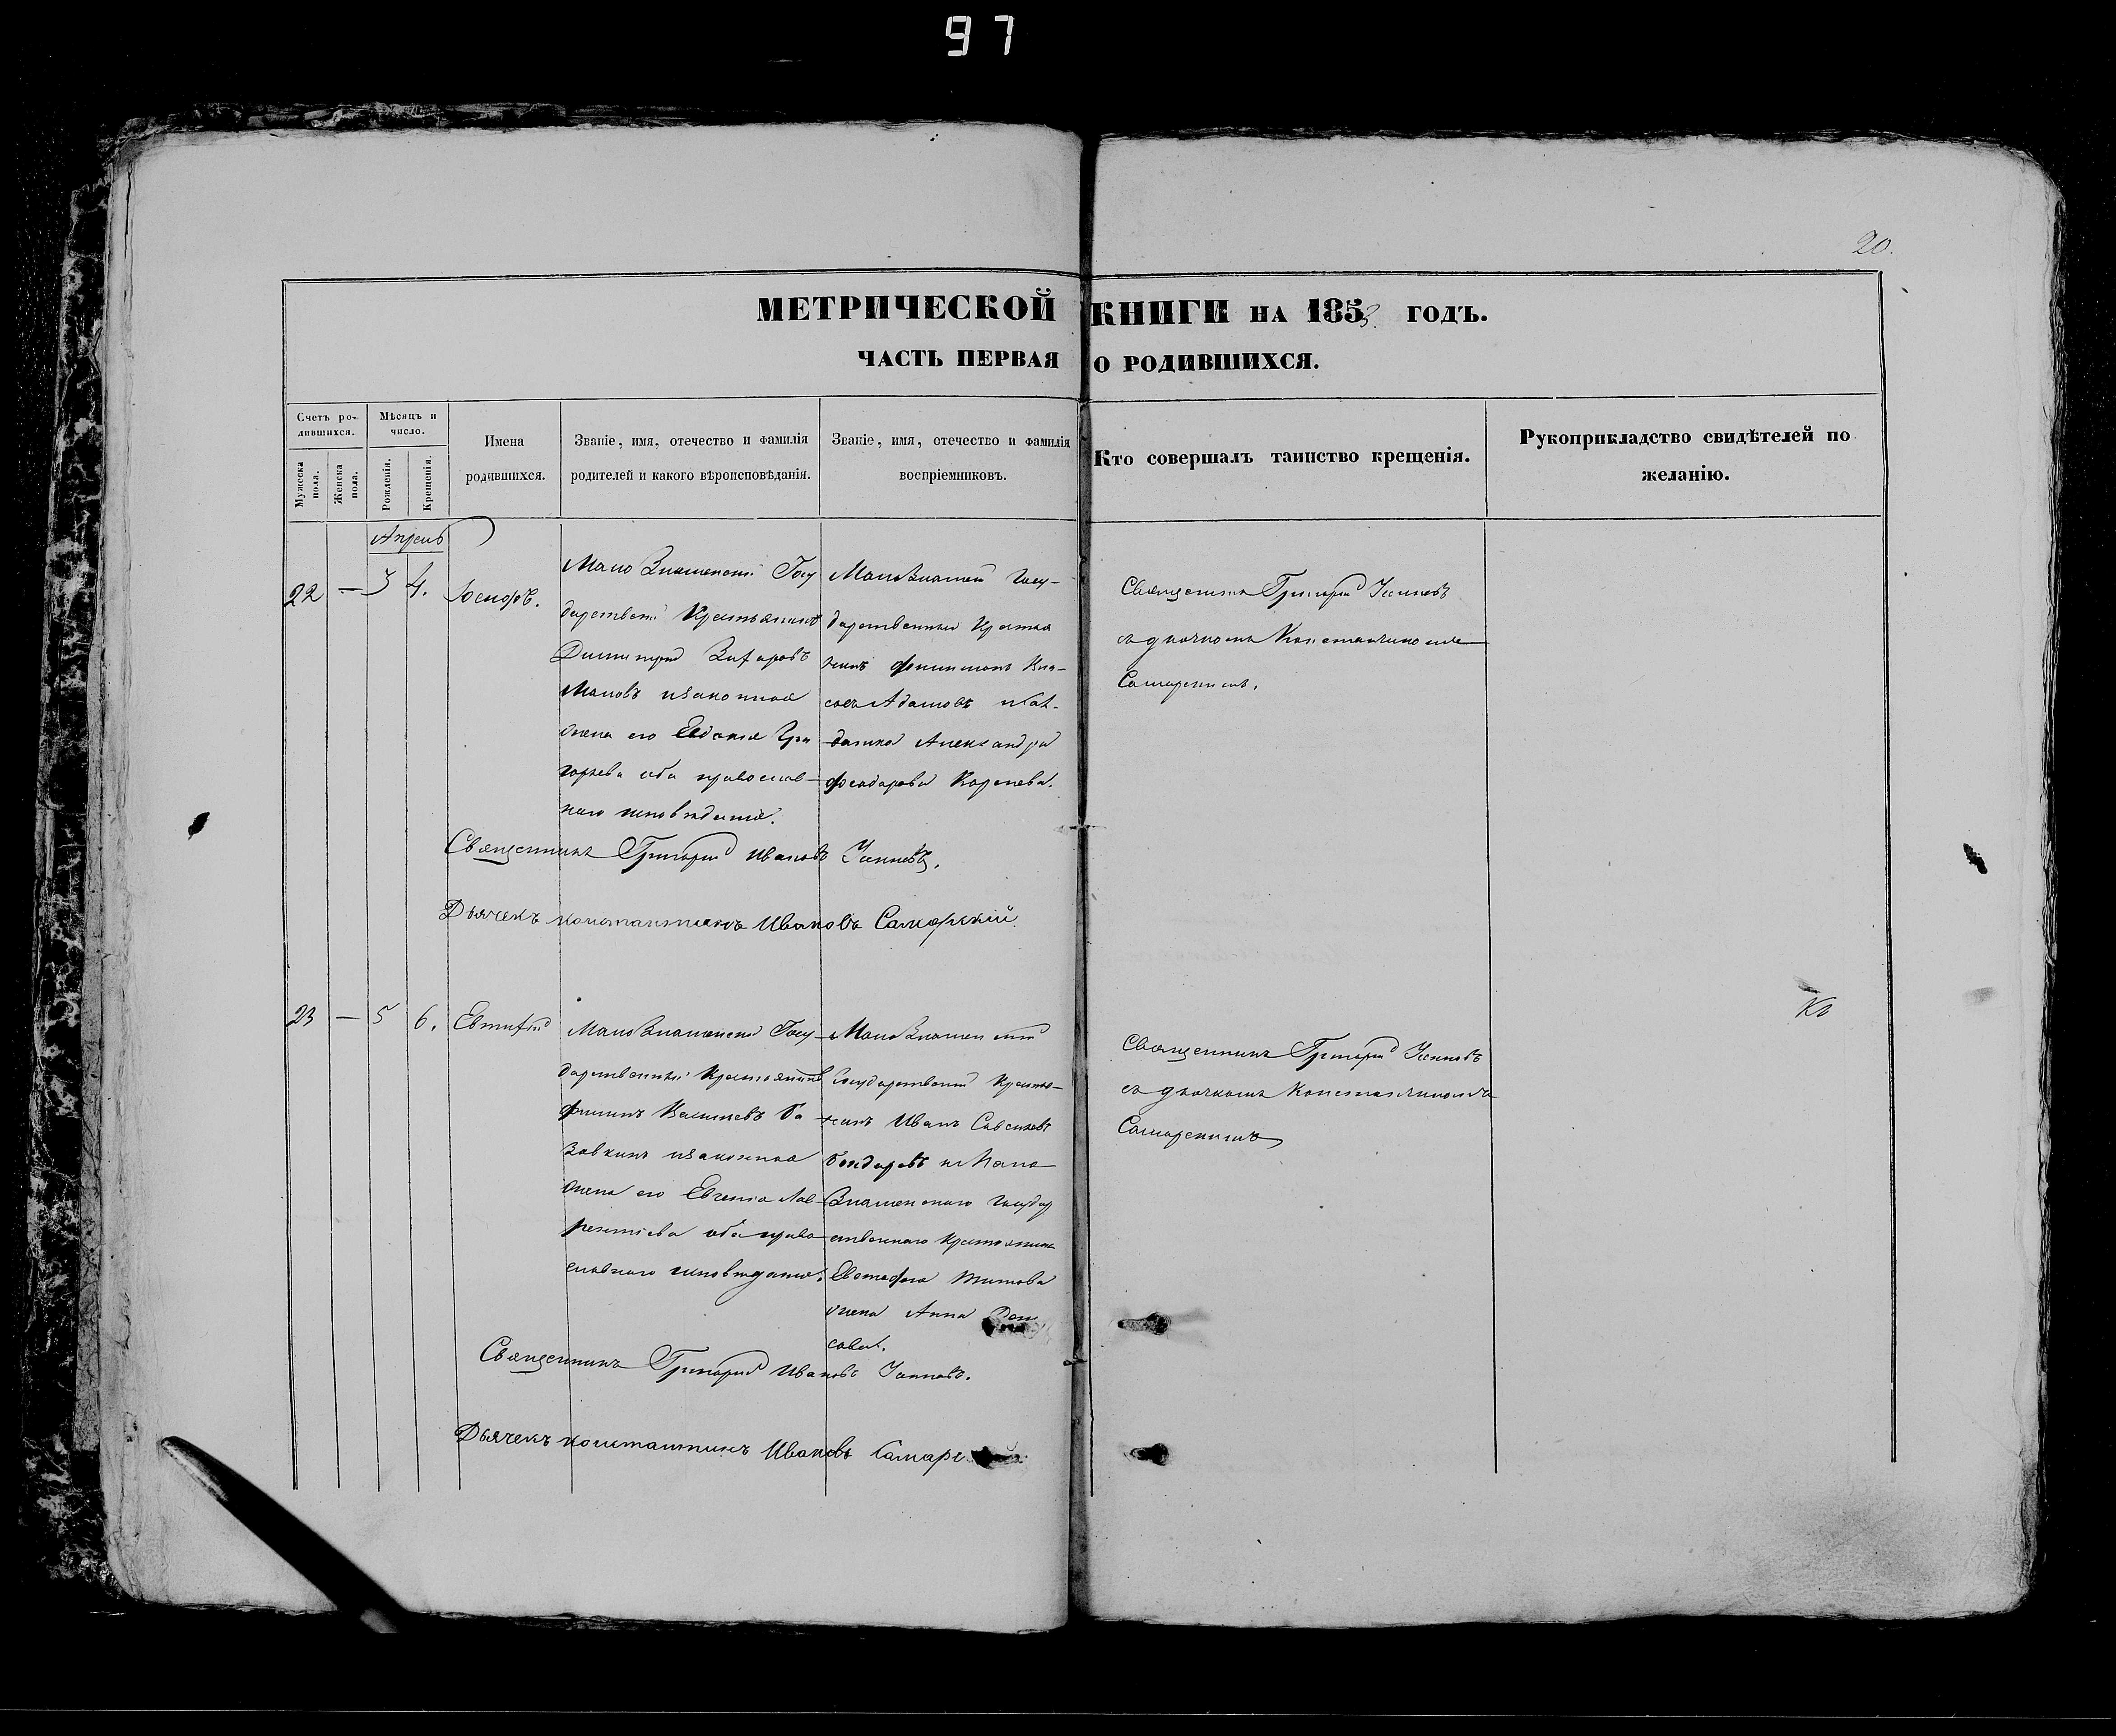 97
20.
МЕТРИЧЕСКОЙ КНИГИ НА 1853. ГОДЪ.
ЧАСТЬ ПЕРВАЯ О РОДИВШИХСЯ.
Счетъ ро-
дившихся.
Мужеска пола.
Женска пола.
Мѣсяцъ и
число.
Рожденія.
Крещенія.
Имена
родившихся.
Званіе, имя, отечество и фамилія
родителей и какого вѣроисповѣданія.
Званіе, имя, отечество и фамилія
воспріемниковъ.
Кто совершалъ таинство крещенія.
Рукоприкладство свидѣтелей по
желанію.
Апрель
22 — 3 4. Іосифъ.
Мало Знаменскій Госу
дарственный Крестьянинъ
Димитрій Захаровъ
и законная
жена его Евдокія Гри
горьева оба православ-
наго исповеданія.
Мало Знаменскій Госу-
дарственный Крестья
нинъ Филимонъ
Адамовъ и
Александра
Феодорова
Священникъ Григорій
съ дьячкомъ Константиномъ
Самарскимъ.
Священникъ Григорій Ивановъ
Дьячекъ Константинъ Ивановъ Самарскій.
23 — 5 6. Евтихій
Мало Знаменскій Госу-
дарственный Крестьянинъ
Филипъ Васильевъ Ба
и законная
жена его Евгенія Лав-
рентіева оба право
славнаго исповеданія.
Мало Знаменскій
Государственный Крестья-
нинъ Иванъ
Бондаревъ и Мало
Знаменскаго Государ
ственнаго Крестьянина
Евстафія Титова
жена Анна
Кв
Священникъ Григорій
съ дьячкомъ Константиномъ
Самарскимъ
Священникъ Григорій Ивановъ
Дьячекъ Константинъ Ивановъ